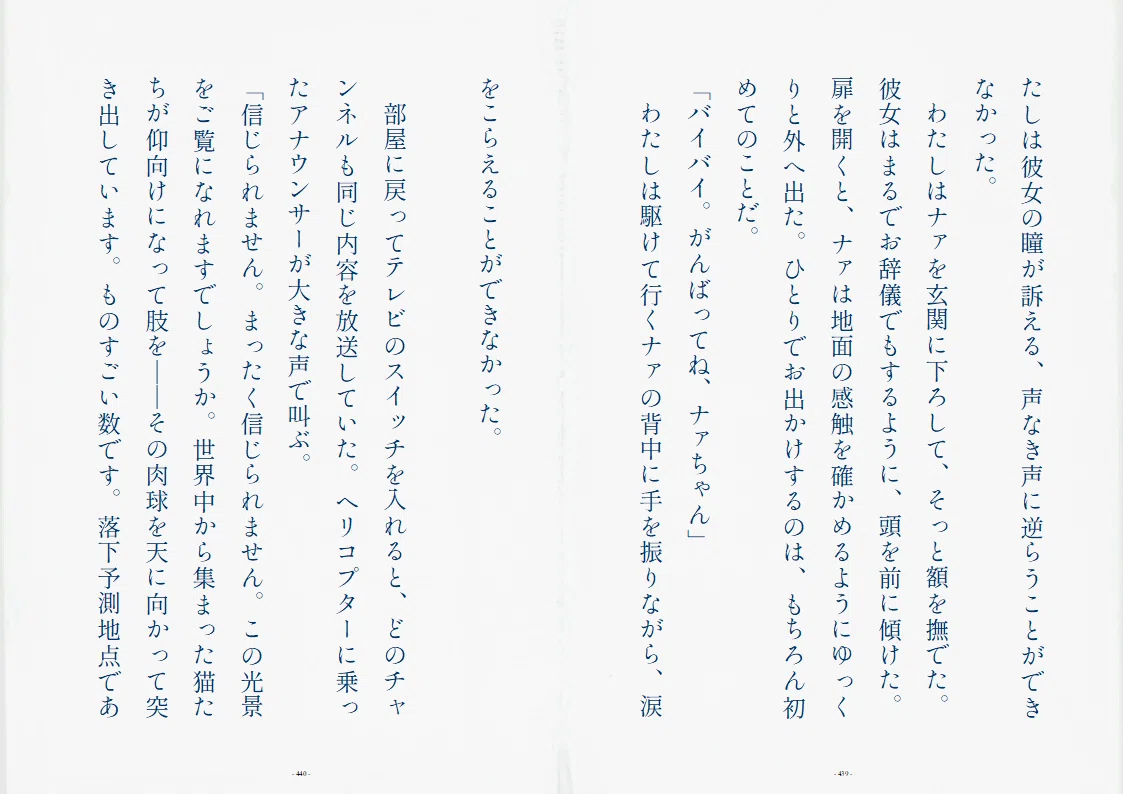 たしは彼女の瞳が訴える、声なき声に逆らうことができ
なかった。
　わたしはナァを玄関に下ろして、そっと額を撫でた。
彼女はまるでお辞儀でもするように、頭を前に傾けた。
扉を開くと、ナァは地面の感触を確かめるようにゆっく
りと外へ出た。ひとりでお出かけするのは、もちろん初
めてのことだ。
「バイバイ。がんばってね、ナァちゃん」
　わたしは駆けて行くナァの背中に手を振りながら、涙
- 439 -
をこらえることができなかった。
　部屋に戻ってテレビのスイッチを入れると、どのチャ
ンネルも同じ内容を放送していた。ヘリコプターに乗っ
たアナウンサーが大きな声で叫ぶ。
「信じられません。まったく信じられません。この光景
をご覧になれますでしょうか。世界中から集まった猫た
ちが仰向けになって肢を――その肉球を天に向かって突
き出しています。ものすごい数です。落下予測地点であ
- 440 -